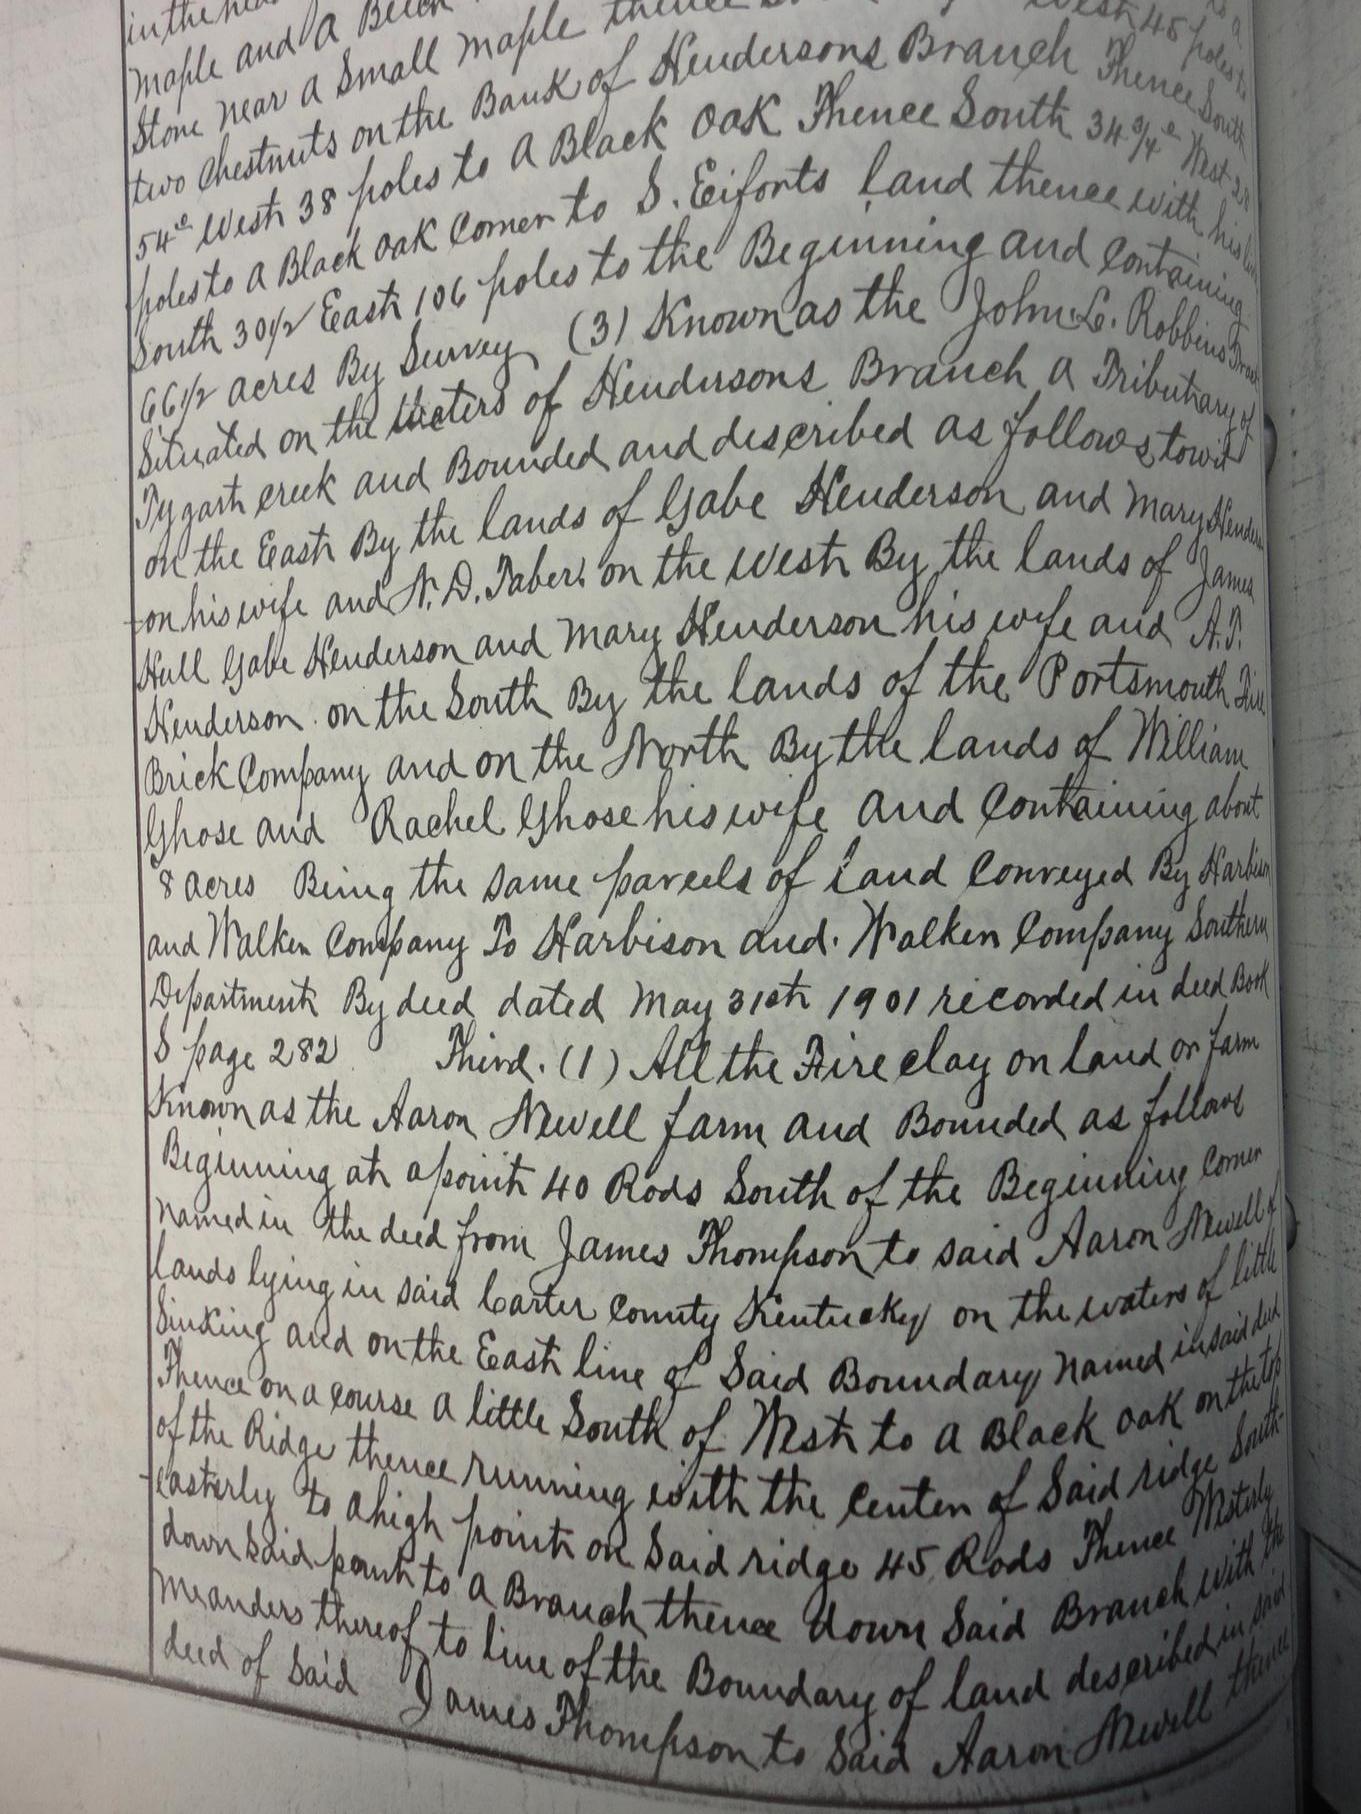 in the head
Maple and a Beech
Stone near a Small Maple thence West 45 poles to
two Chestnuts on the Bank of Hendersons Branch Thence South
54° West 38 poles to a Black Oak Thence South 34 3/4° West 28
poles to a Black Oak Corner to S. Eiforts land thence with his line
South 30 1/2 East 106 poles to the Beginning and Containing
66 1/2 acres By Survey (3) Known as the John L. Robbins Tract
Situated on the Waters of Hendersons Branch a Tributary of
Tygart creek and Bounded and described as follows towit
on the East By the lands of Gabe Henderson and Mary Henders
-on his wife and N. D. Tabers on the West By the lands of James
Hull Gabe Henderson and Mary Henderson his wife and A.T.
Henderson on the South By the lands of the Portsmouth Fire
Brick Company and on the North By the lands of William
Ghose and Rachel Ghose his wife and Containing about
8 acres Being the same parcels of land Conveyed By Harbison
and Walker Company To Harbison and Walker Company Southern
Department By deed dated May 31st 1901 recorded in deed Book
S page 282 Third. (1) All the Fire clay on land or farm
Known as the Aaron Newell farm and Bounded as follows
Beginning at a point 40 Rods South of the Beginning Corner
named in the deed from James Thompson to said Aaron Newell of
lands lying in said Carter County Kentucky on the waters of little
Sinking and on the East line of Said Boundary named in said deed
Thence on a course a little South of West to a Black oak on the top
of the Ridge thence running with the center of Said ridge South-
-easterly to a high point on Said ridge 45 Rods Thence Westerly
down Said point to a Branch thence down Said Branch with the
meanders thereof to line of the Boundary of land described in said
deed of Said James Thompson to Said Aaron Newell thence